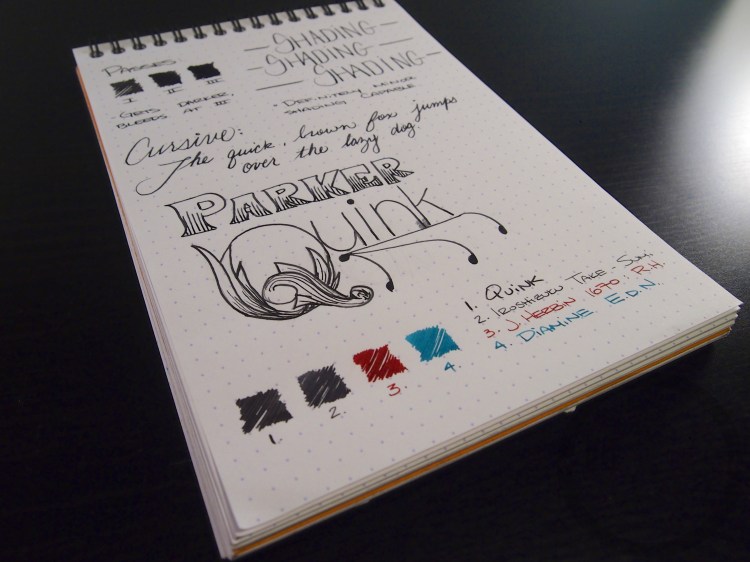 SHADING
SHADING
SHADING
PASSES
I II III
· GETS DARKER,
BLEEDS AT III
* DEFINITELY MINOR
SHADING CAPABLE
Cursive:
The quick, brown fox jumps
over the lazy dog.
PARKER
Quink
1. QUINK
2. IROSHIZUKU TAKE SUMI
3. J. HERBIN 1670 R.H.
4. DIAMINE E.D.N.
1. 2. 3. 4.